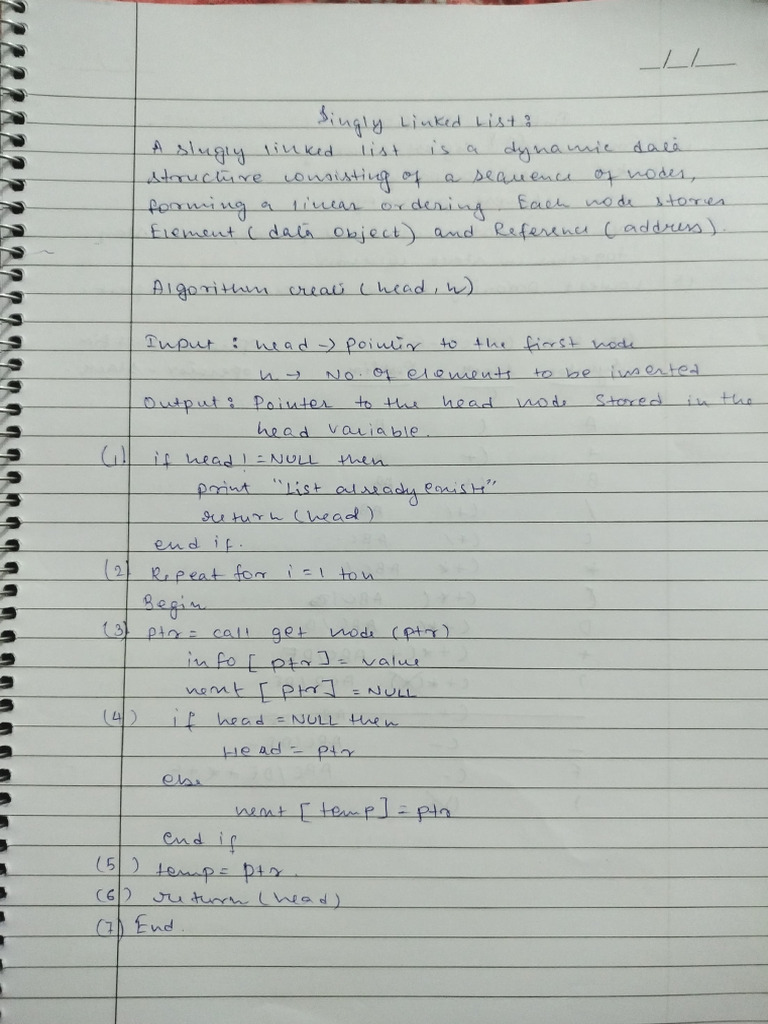 _/_/__
Singly Linked List:
A slngly linked list is a dynamic data
structure consisting of a sequence of nodes,
forming a linear ordering. Each node stores
Element (data object) and Reference (address).
Algorithm create (head, n)
Input : head → pointer to the first node
n → No. of elements to be inserted
Output : Pointer to the head node stored in the
head variable.
(1) if head != NULL then
print "List already exists"
return (head)
end if.
(2) Repeat for i = 1 to n
Begin
(3) ptr = call get node (ptr)
info [ptr] = value
next [ptr] = NULL
(4) if head = NULL then
Head = ptr
else
next [temp] = ptr
end if
(5) temp = ptr.
(6) return (head)
(7) End.